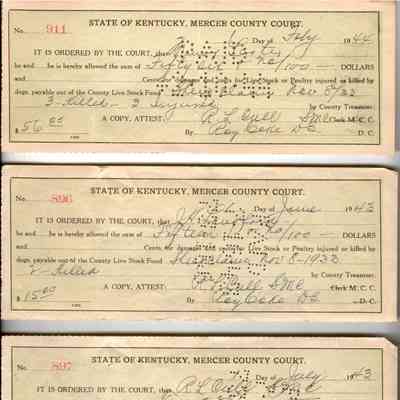 STATE OF KENTUCKY, MERCER COUNTY COURT.
No. 911 Day of Feby 1944
IT IS ORDERED BY THE COURT, that
he and be is hereby allowed the sum of Fifty Six & no/100 — DOLLARS
and Cents for damages and costs for Live Stock or Poultry injured or killed by
dogs, payable out of the County Live Stock Fund Nov 8/33
3 - Killed - 3 Injured by County Treasurer.
$56.00 A COPY, ATTEST: R L Cull SMC Clerk M. C. C.
By Roy Coke DC D. C.
STATE OF KENTUCKY, MERCER COUNTY COURT.
No. 896 Day of June 1943
IT IS ORDERED BY THE COURT, that
he and be is hereby allowed the sum of Fifteen & no/100 — DOLLARS
and Cents for damages and costs for Live Stock or Poultry injured or killed by
dogs, payable out of the County Live Stock Fund Nov 8-1933
2 killed by County Treasurer.
$15.00 A COPY, ATTEST: R L Cull SMC Clerk M. C. C.
By Roy Coke DC D. C.
STATE OF KENTUCKY, MERCER COUNTY COURT.
No. 897 Day of July 1943
IT IS ORDERED BY THE COURT, that R L